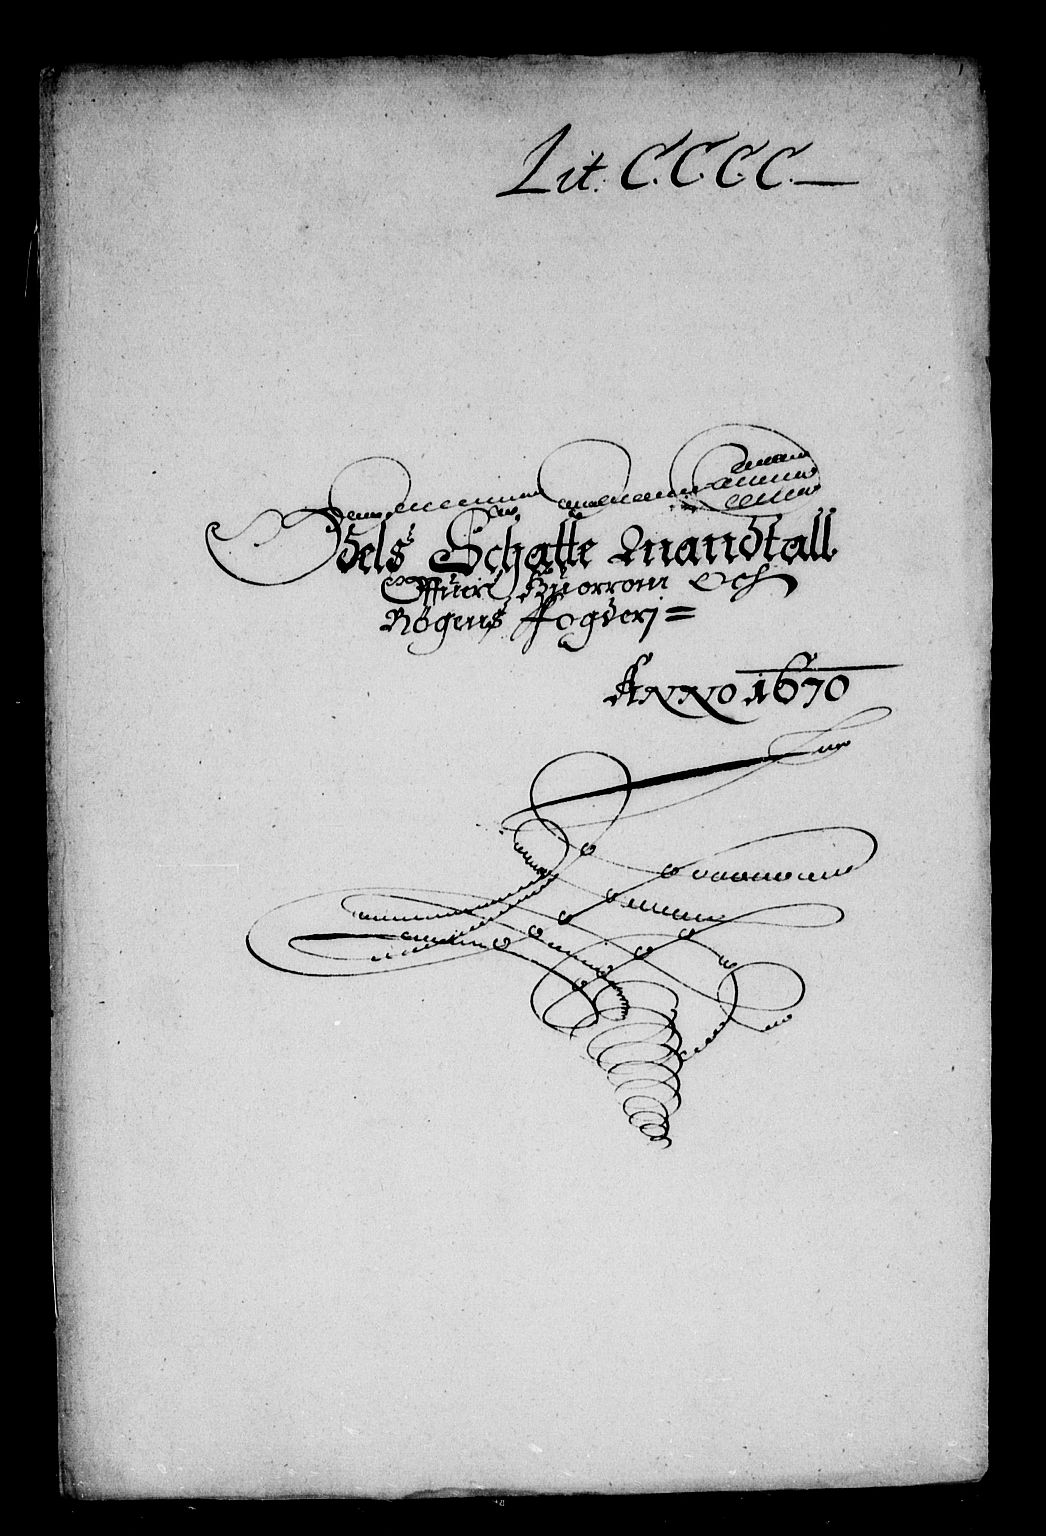 Lit. C. C. C. C.
Odels Schatte Mandtall
Offuer Quorrom Och
Rögens ffogderj =
Anno 1670